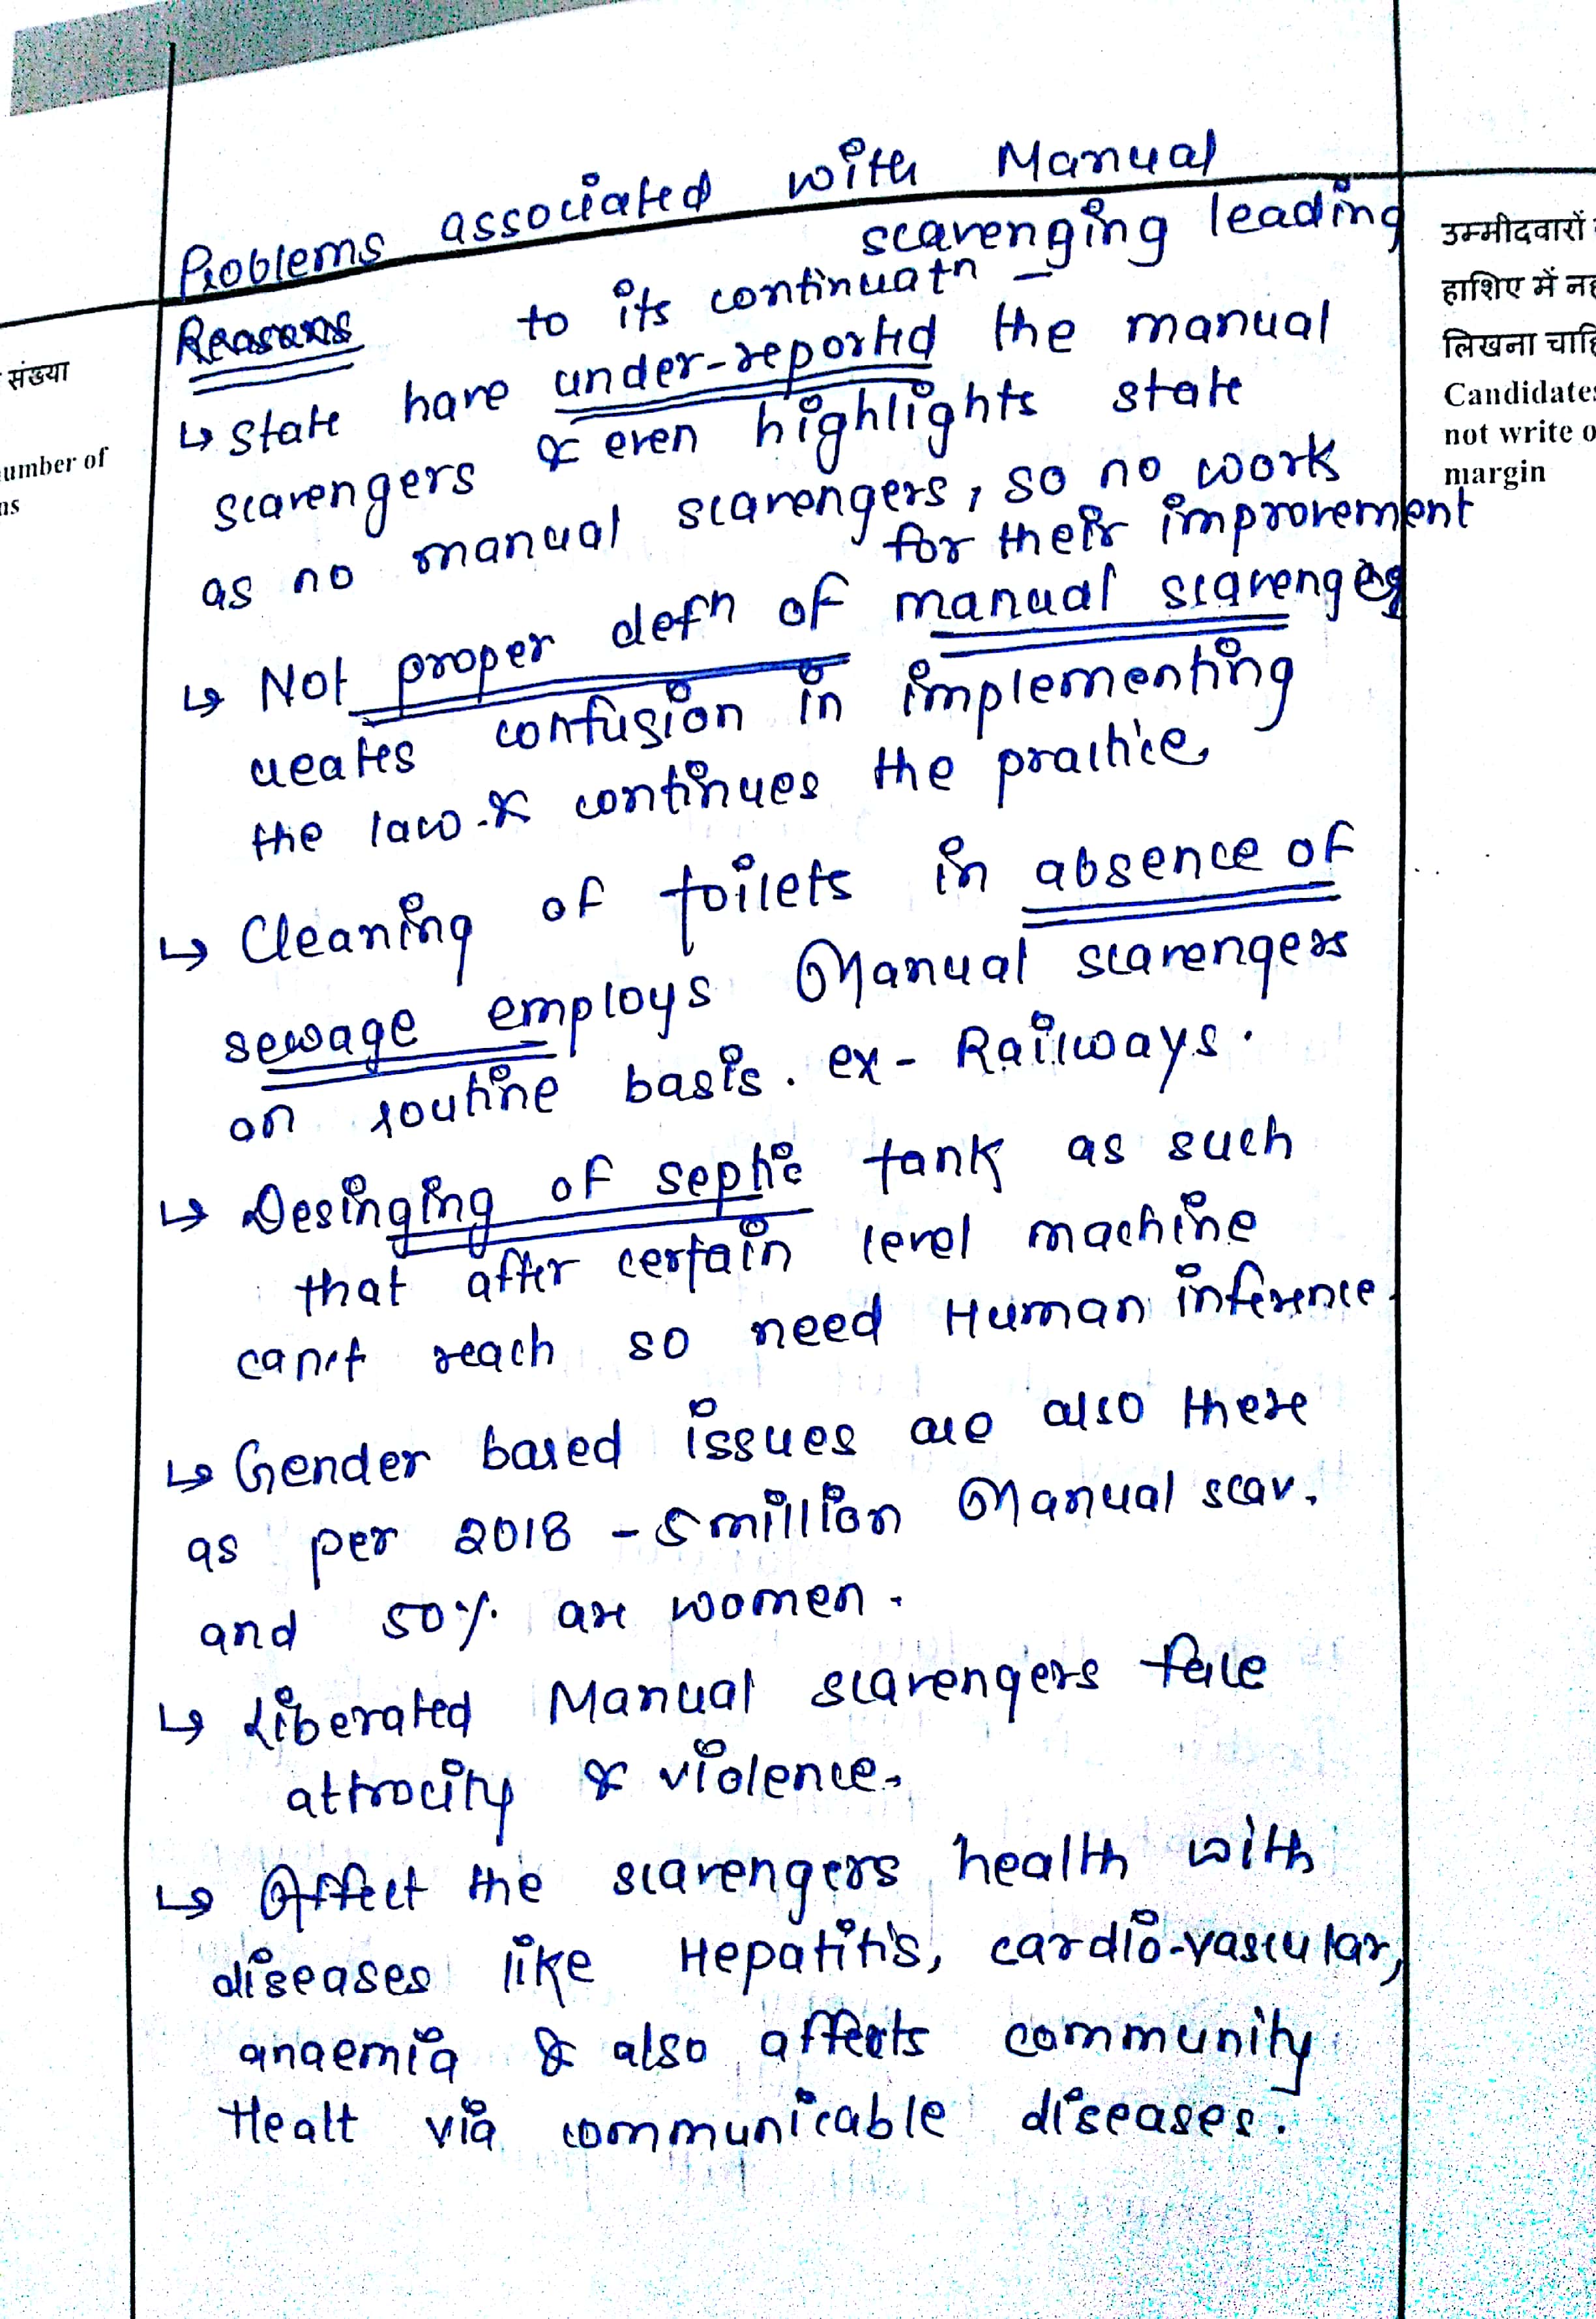 Problems associated with Manual
scavenging leading
Reasons to its continuatn -
↳ State have under-reported the manual
scavengers & even highlights state
as no manual scavengers, so no work
for their improvement
↳ Not proper defn of manual scavenging
creates confusion in implementing
the law & continues the practice.
↳ Cleaning of toilets in absence of
sewage employs Manual scavengers
on routine basis. ex - Railways.
↳ Desinging of septic tank as such
that after certain level machine
can't reach so need Human inference.
↳ Gender based issues are also there
as per 2018 - 5 million Manual scav.
and 50% are women.
↳ Liberated Manual scavengers face
attrocity & violence.
↳ Affect the scavengers health with
diseases like Hepatitis, cardio-vascular,
anaemia & also affects community
Healt via communicable diseases.
संख्या
umber of
ns
उम्मीदवारों
हाशिए में
लिखना
Candidates
not write o
margin